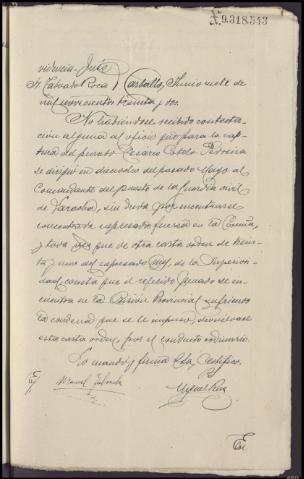 N.9.318.543
videncia - Juez
Sr. Salvador Roca Carballo, Junio nueve de
mil novecientos treinta y dos.
No habiéndose recibido contesta-
ción alguna al oficio que para la cap-
tura del penado Cesareo
se dirigió en dieciocho del pasado Mayo al
Comandante del puesto de la Guardia civil
de Laracha, sin duda por encontrarse
concentrada expresada fuerza en la Coruña,
y toda vez que de otra carta orden de trein-
ta y uno del expresado Mayo, de la Superiori-
dad, consta que el referido penado se en-
cuentra en la Prisión Provincial sufriendo
la condena que se le impuso, devuélvase
esta carta orden por el conducto ordinario.
Lo mandó y firma S.Sª. Certifico.
Manuel
Miguel